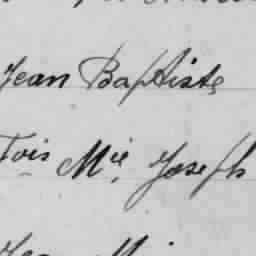 Jean Baptiste
Tois Mie Joseph